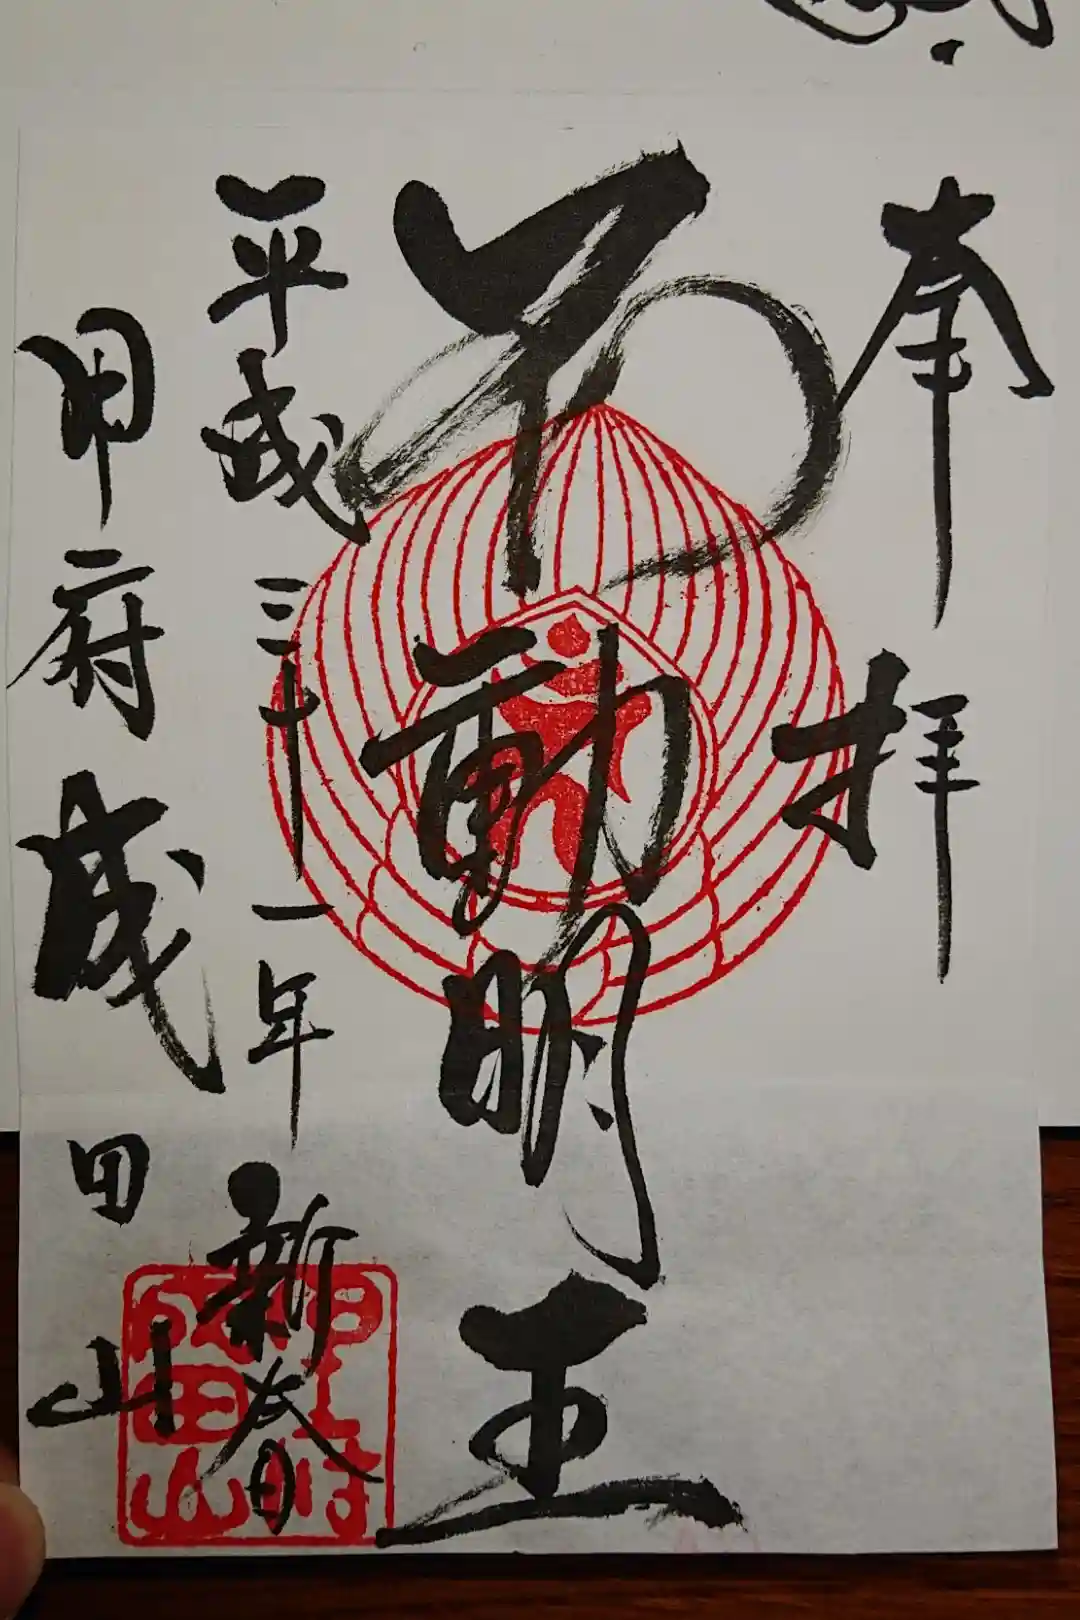 奉拝
不動明王
平成三十一年新春
甲府成田山
甲府
成田山